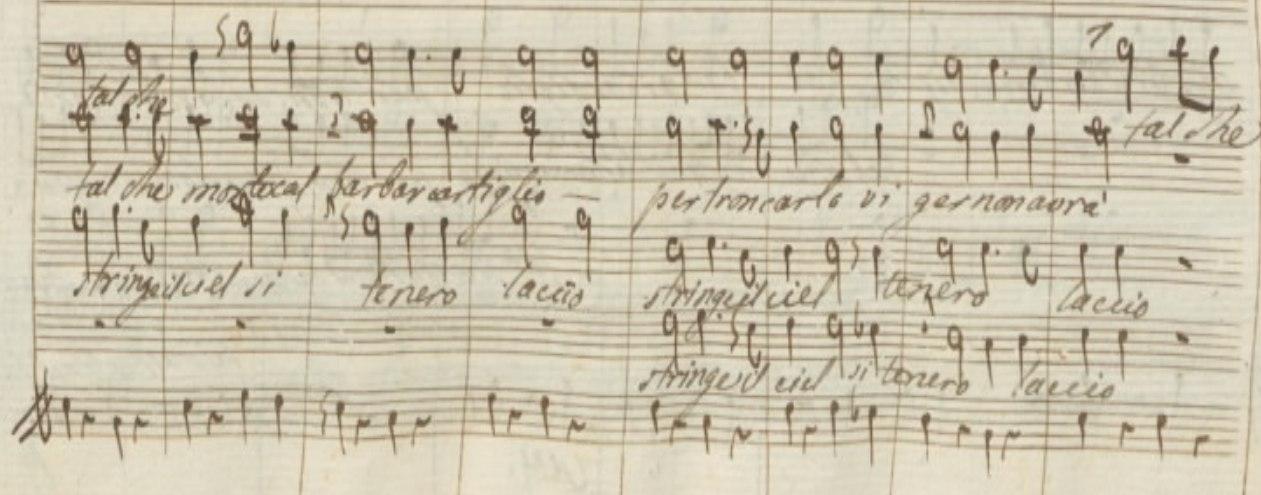 tal che
tal che
tal che mortocal barbaro artiglio — per troncarlo vi gor non avrà
stringe il ciel si tenero laccio stringe il ciel tenero laccio
stringe il ciel si tenero laccio